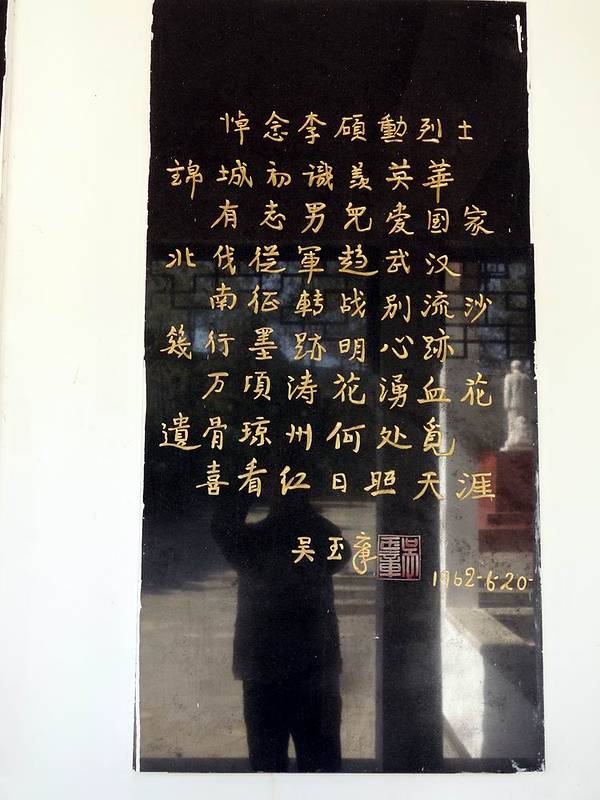 悼念李碩勳烈士
錦城初识羡英華
有志男兒爱国家
北伐從軍趋武汉
南征轉战别流沙
幾行墨跡明心跡
万頃涛花湧血花
遺骨琼州何处覓
喜看红日照天涯
吴玉章
1962-6-20-